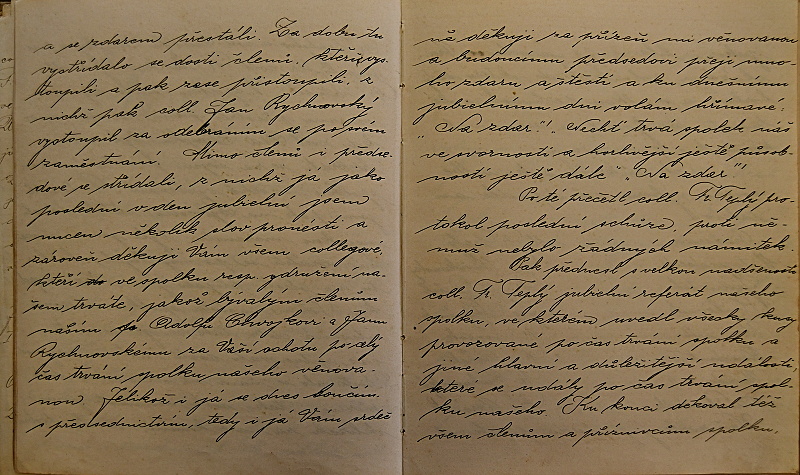 a se zdarem přestáli. Za dobu tu
vystřídalo se dosti členů, kteří vys-
toupili a pak zase přistoupili, z
nichž pak coll. Jan Rychnovský
vystoupil za odebráním se po svém
zaměstnání. Mimo členů i předse-
dové se střídali, z nichž já jako
poslední v den jubielní jsem
nucen několik slov pronésti a
zároveň děkuji Vám všem collegové,
kteří ve spolku resp. združení na-
šem trváte, jakož bývalým členům
našim Adolfu Chvojkovi a Janu
Rychnovskému za Vaši ochotu po celý
čas trvání spolku našeho věnova-
nou. Jelikož i já se dnes loučím
s předsednictvím, tedy i já Vám srdeč
ně děkuji za přízeň mi věnovanou
a budoucímu předsedovi přeji mno-
ho zdaru a štěstí a ku dnešnímu
jubielnímu dni volám hřímavé:
"Na zdar"! Nechť trvá spolek náš
ve svornosti a horlivější ještě působ-
nosti ještě dále "Na zdar"!
Po té přečetl coll. Fr. Teplý pro-
tokol poslední schůze, proti ně-
muž nebylo žádných námitek.
Pak přednesl s velkou nadšeností
coll. Fr. Teplý jubielní referát našeho
spolku, ve kterém uvedl všecky kusy
provozované po čas trvání spolku a
jiné hlavní a důležitější události,
které se udály po čas trvání spol-
ku našeho. Ku konci děkoval též
všem členům a příznivcům spolku.